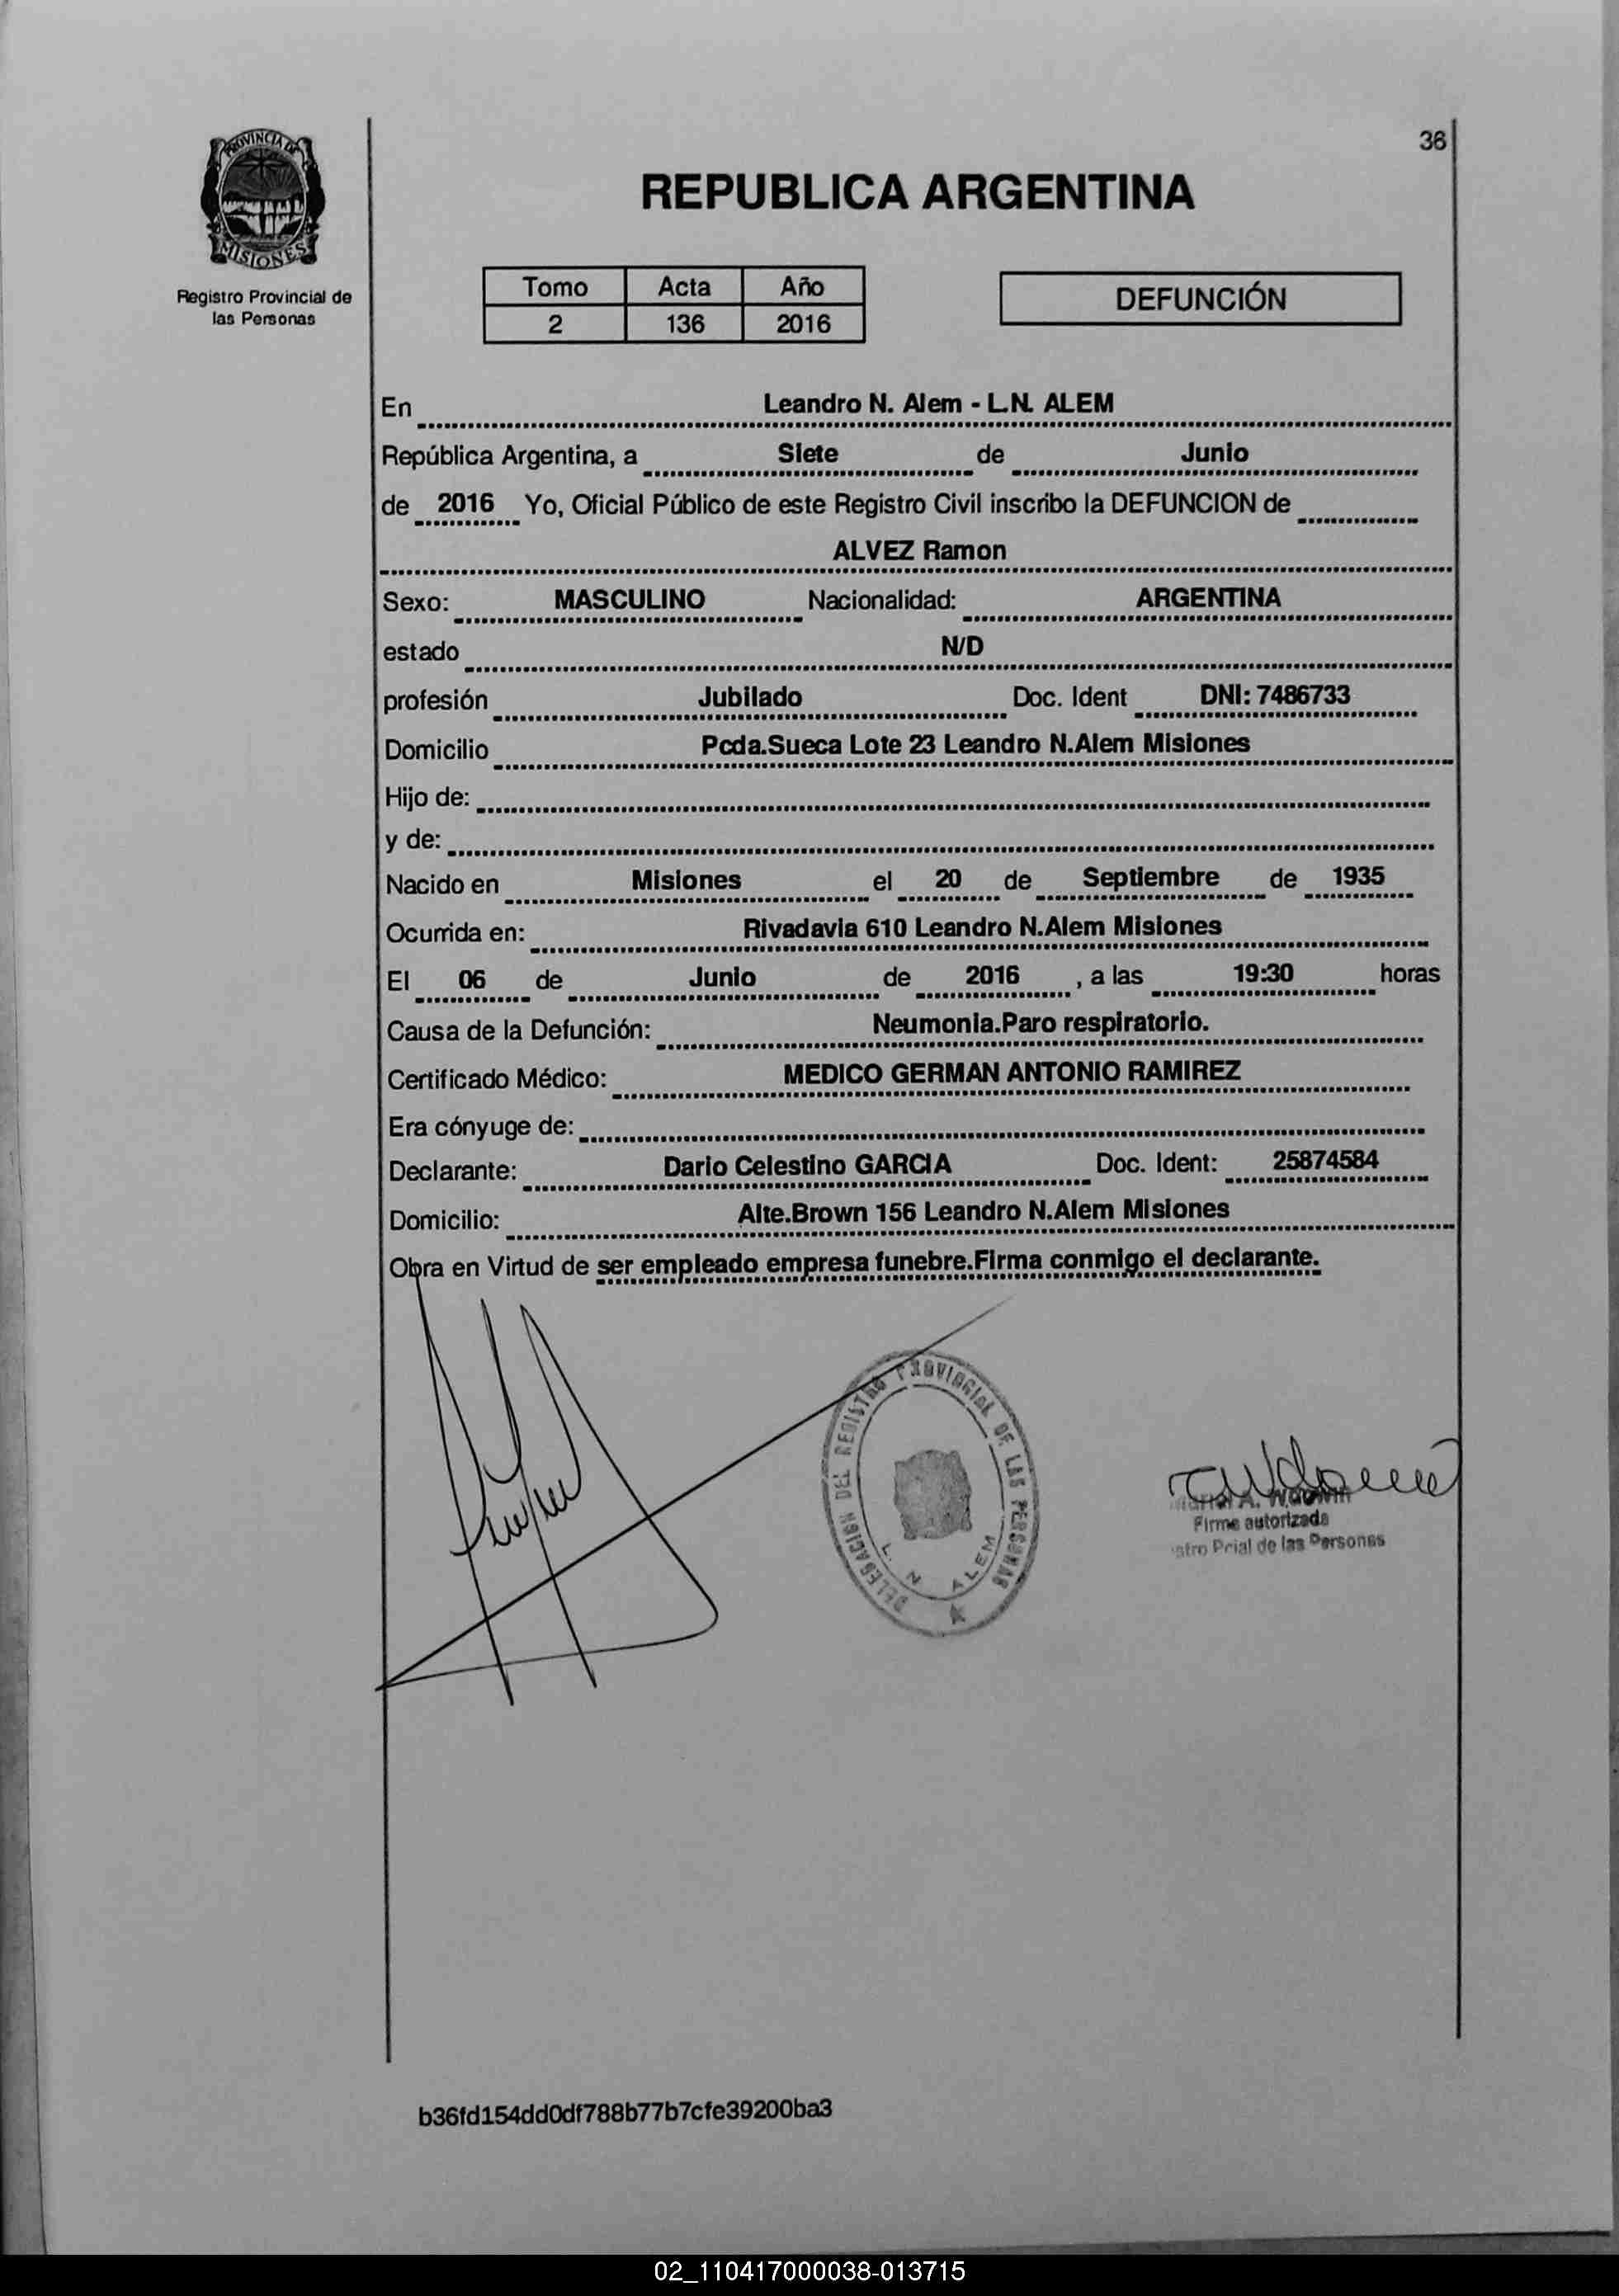 36
PROVINCIA DE
MISIONES
Registro Provincial de
las Personas
REPUBLICA ARGENTINA
Tomo Acta Año
2 136 2016
DEFUNCIÓN
En Leandro N. Alem - L.N. ALEM
República Argentina, a Siete de Junio
de 2016 Yo, Oficial Público de este Registro Civil inscribo la DEFUNCION de
ALVEZ Ramon
Sexo: MASCULINO Nacionalidad: ARGENTINA
estado N/D
profesión Jubilado Doc. Ident DNI: 7486733
Domicilio Pcda.Sueca Lote 23 Leandro N.Alem Misiones
Hijo de:
y de:
Nacido en Misiones el 20 de Septiembre de 1935
Ocurrida en: Rivadavia 610 Leandro N.Alem Misiones
El 06 de Junio de 2016 , a las 19:30 horas
Causa de la Defunción: Neumonia.Paro respiratorio.
Certificado Médico: MEDICO GERMAN ANTONIO RAMIREZ
Era cónyuge de:
Declarante: Dario Celestino GARCIA Doc. Ident: 25874584
Domicilio: Alte.Brown 156 Leandro N.Alem Misiones
Obra en Virtud de ser empleado empresa funebre.Firma conmigo el declarante.
DELEGACION DEL REGISTRO PROVINCIAL DE LAS PERSONAS
L. N ALEM
A.
Firma autorizada
Pcial de las Personas
b36fd154dd0df788b77b7cfe39200ba3
02_110417000038-013715